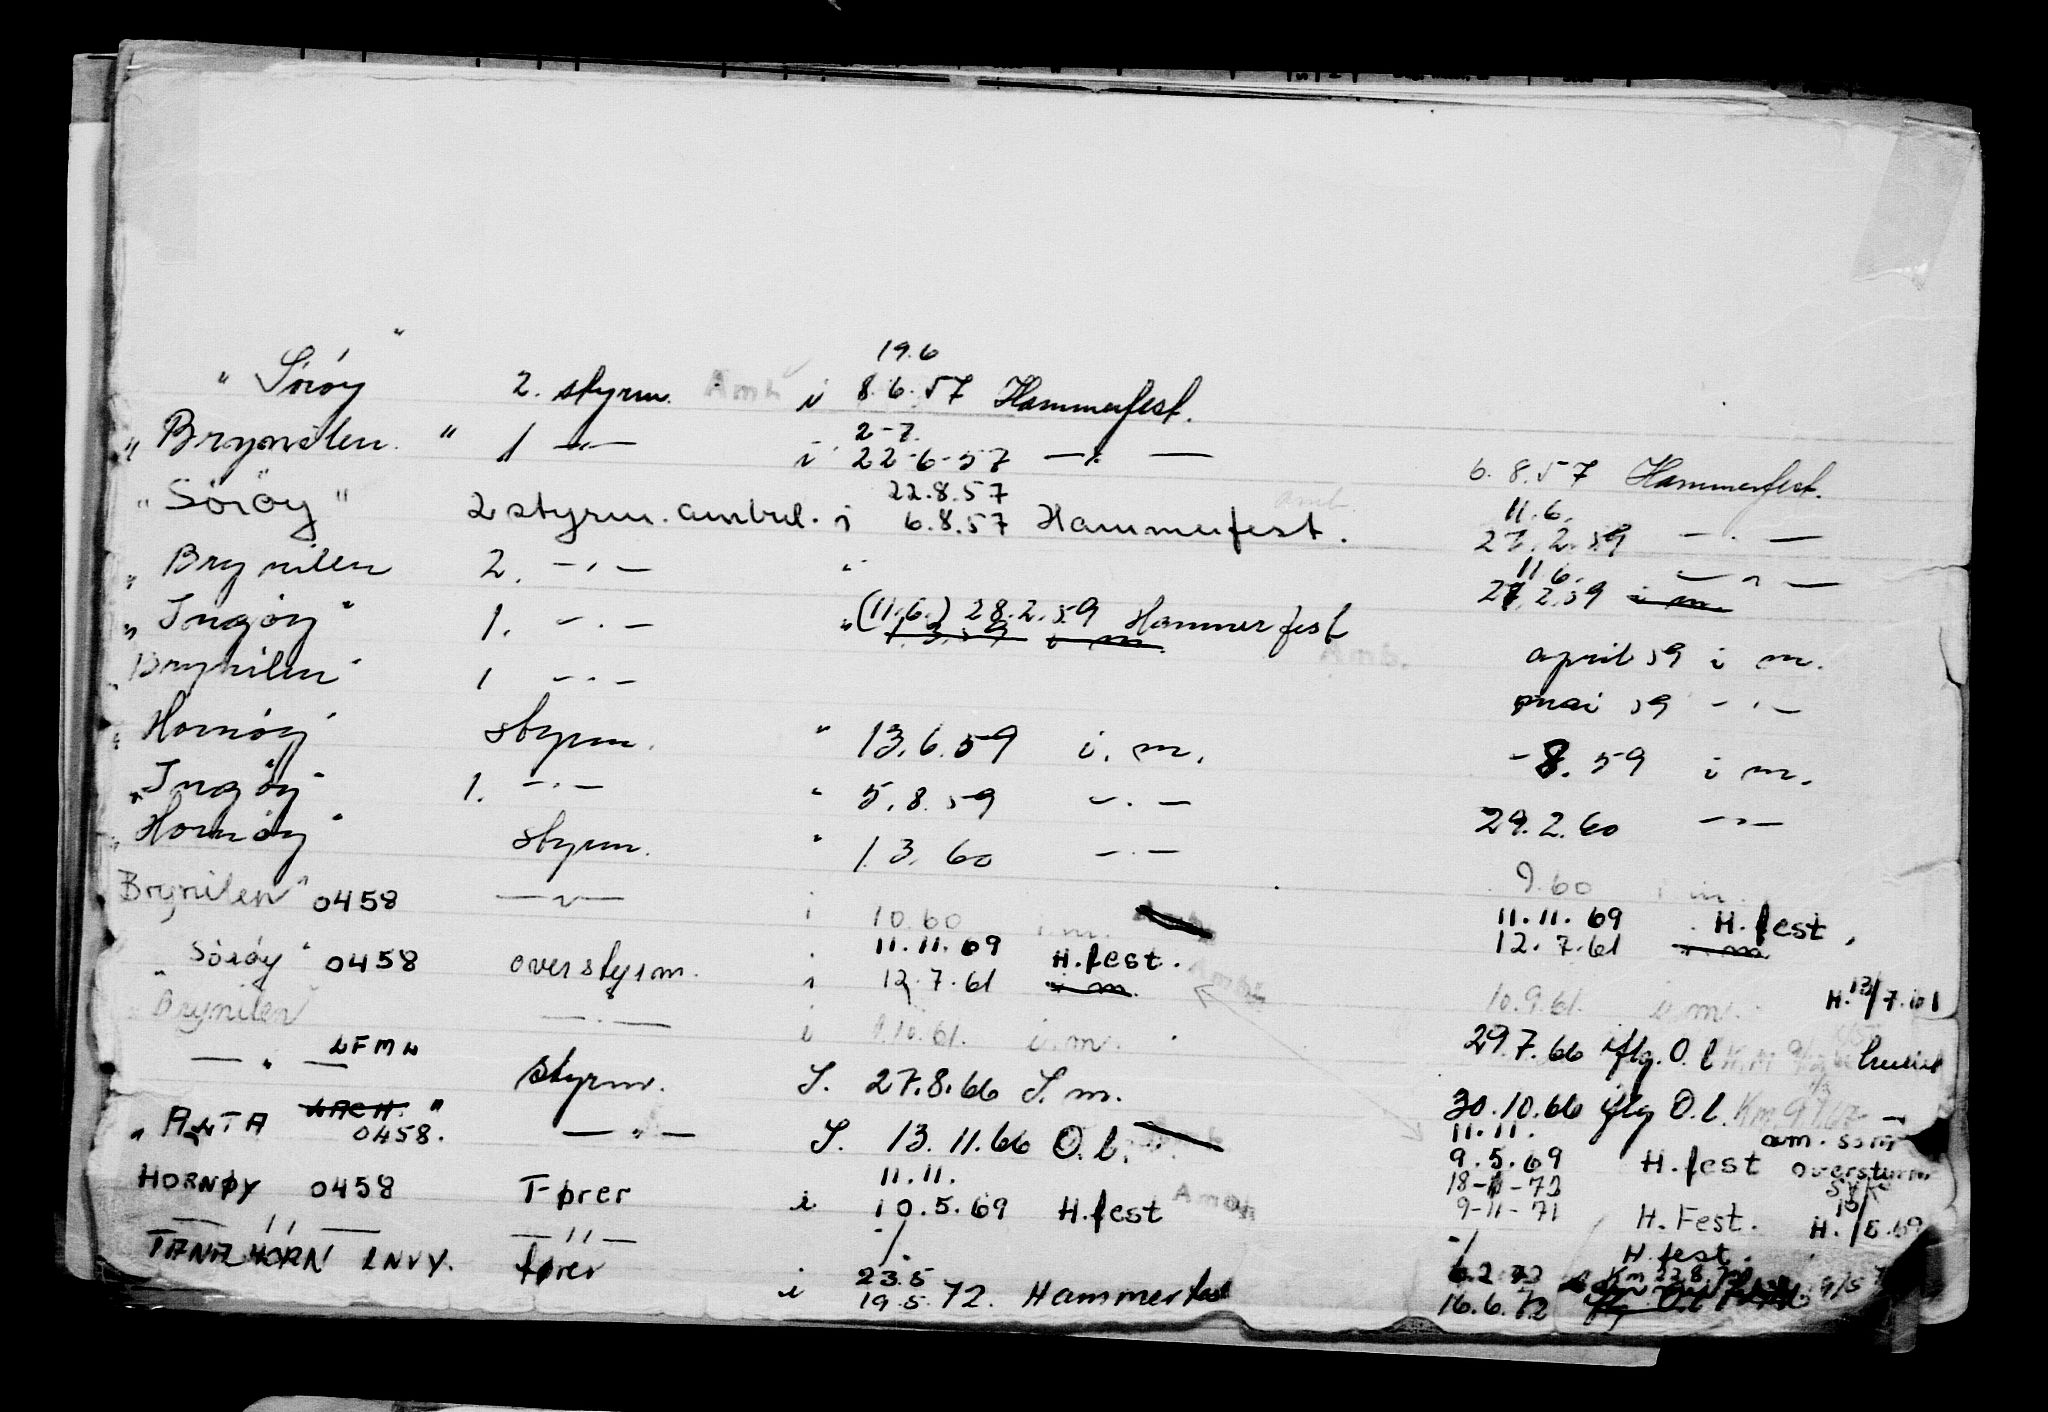 19.6
" Söröy " 2. styrm. Amb i 8.6.57 Hammerfest.
2-7.
" Brynilen. " 1 —"— i 22-6-57 —"— 6.8.57 Hammerfest.
22.8.57 amb. 11.6.
" Söröy " 2 styrm. ambul. i 6.8.57 Hammerfest. 27.2.59 — . —
11.6. — " —
" Brynilen 2. —'— " 27.2.59 i m.
" Ingöy " 1. — . — " (11.6.) 28.2.59 Hammerfest
1.3.59 i m. Amb. april 59 i m.
" Brynilen " 1 — . — mai 59 — . —
" Hornöy " styrm. " 13.6.59 i. m. - 8. 59 i m.
" Ingöy " 1. — . — " 5.8.59 — . — 29.2.60 — " —
" Hornöy " styrm. " 1.3.60 — . — 9.60 i m.
Brynilen " 0458 — " — i 10.60 i.m. 11.11.69 H.fest.
11.11.69 H.fest. 12.7.61 i m
Söröy " 0458 overstyrm. i 12.7.61 i m. Amb. 10.9.61. i m. H. 13/7.61
" Brynilen " — . — i 1.10.61. i.m. 29.7.66 iflg. O.l
— " — LFMN styrm. S. 27.8.66 S. m. 30.10.66 iflg O.l.
" ALTA LAEH. " 0458. — " — S. 13.11.66 O.l. 11.11. am. som
11.11. 9.5.69 H.fest overstyrm
HORNØY 0458 Fører i 10.5.69 H.fest 18-11-73
— 11 — — 11 — -/. 9-11-71 H. Fest. H. /5.69
-/ H.fest.
TANAHORN LNVY. fører i 23.5 6.2 72 Km 22.8
19.5.72. Hammerfest 16.6.72 9/5